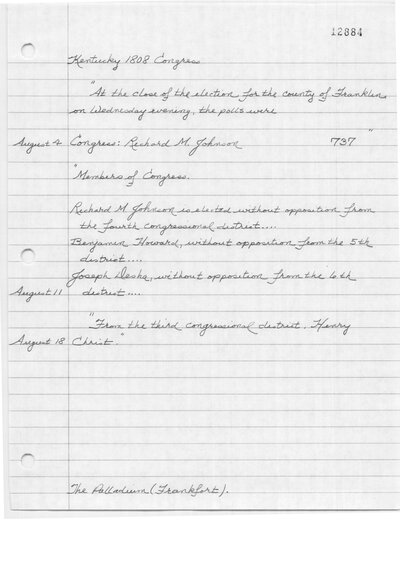 12884
Kentucky 1808 Congress
"At the close of the election for the county of Franklin,
on Wednesday evening, the polls were
August 4 Congress: Richard M. Johnson 737"
"Members of Congress.
Richard M Johnson is elected without opposition from
the fourth congressional district....
Benjamin Howard, without opposition from the 5th
district....
Joseph Desha, without opposition from the 6th
August 11 district....
"From the third congressional district, Henry
August 18 Christ."
The Palladium (Frankfort).